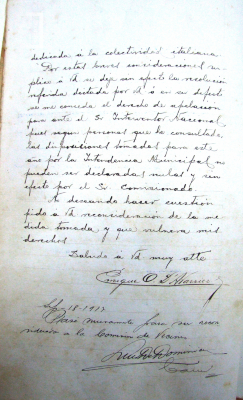 dedicada á la colectividad italiana.
Por estas breves consideraciones su-
plico á Vd deje sin efecto la resolucion
referida dictada por Vd ó en su defecto
se me conceda el derecho de apelacion
para ante el Sr Interventor Nacional,
pues segun personas que he consultado,
las disposiciones tomadas para este
año por la Intendencia Municipal no
pueden ser declaradas nulas y sin
efecto por el Sr Comisionado.
No deseando hacer cuestion
pido á Vd reconsideracion de la me-
dida tomada, y que vulnera mis
derechos
Saluda á Vd muy atte
Enrique O
18-1917
Pase nuevamente para su
á la Comision de